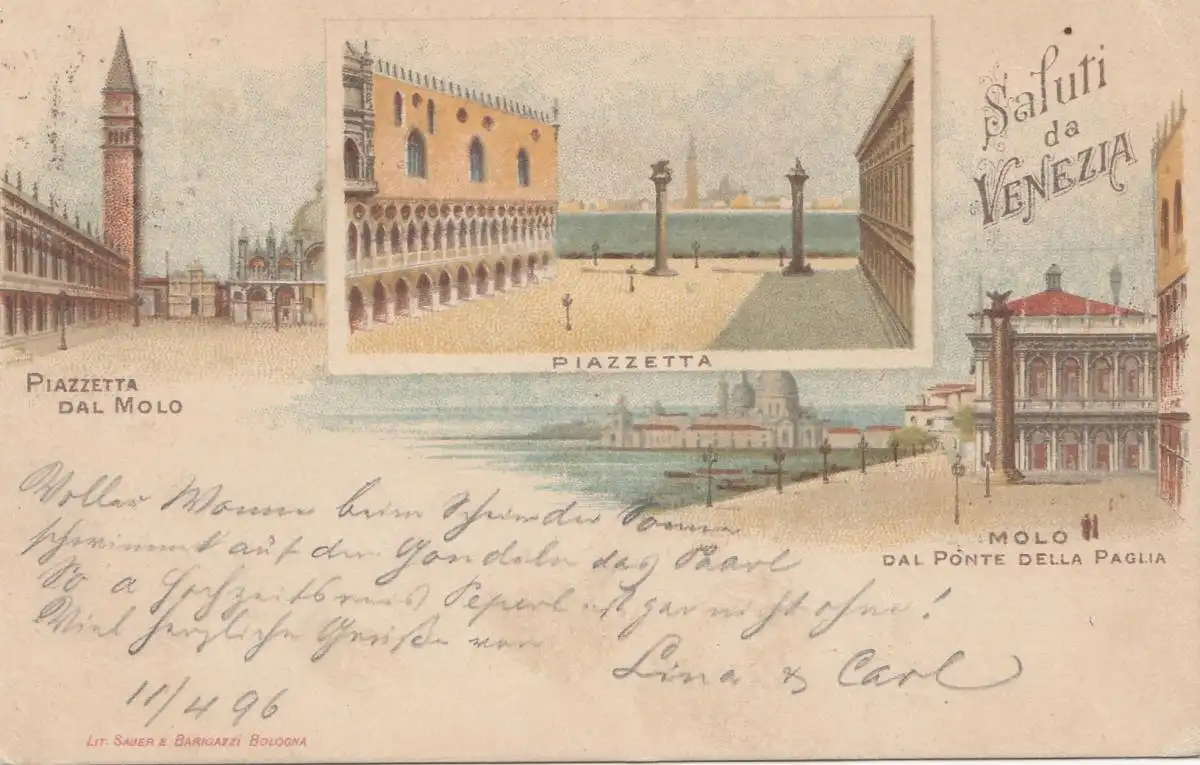 Saluti
da
VENEZIA
PIAZZETTA
PIAZZETTA
DAL MOLO
MOLO
DAL PONTE DELLA PAGLIA
Voller Wonne beim Schein der Sonne
schwimmt auf den Gondeln das Paarl
So a Hochzeitsreis Peperl ist gar nicht ohne!
Viel herzliche Grüße von
Lina & Carl
11/4 96
LIT. SAUER E BARIGAZZI BOLOGNA